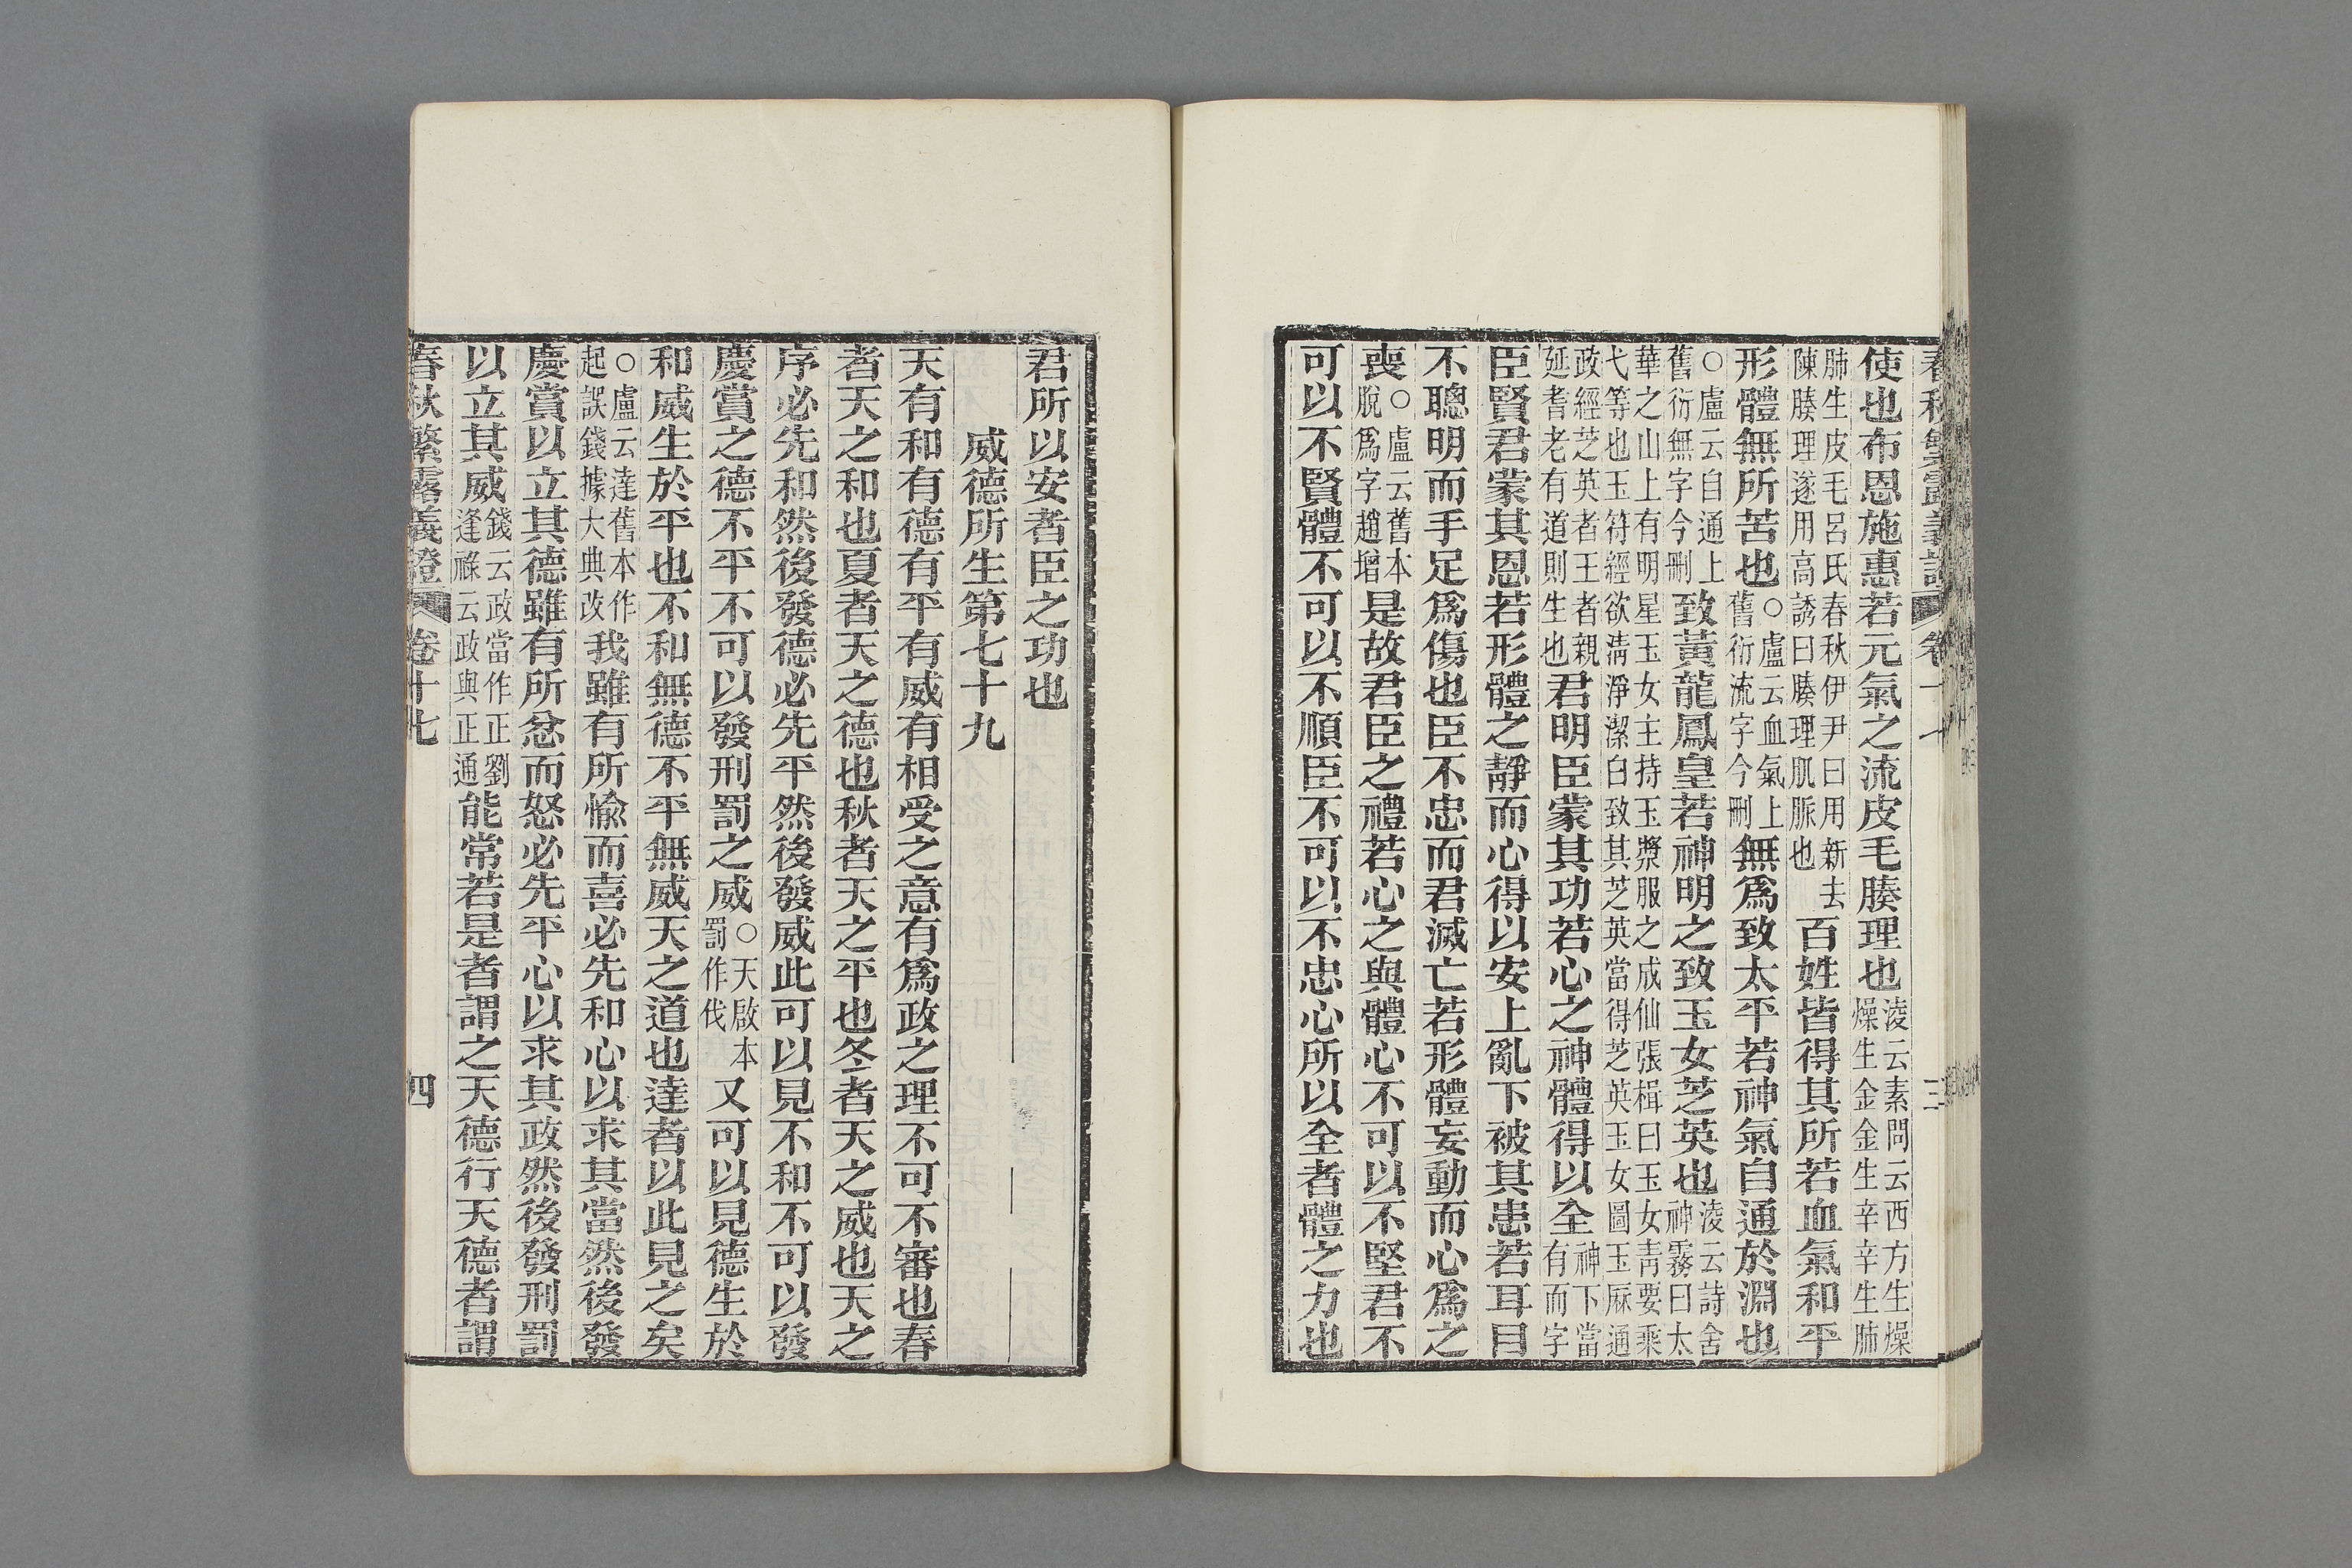 春秋繁露義證 卷十七 三
使也布恩施惠若元氣之流皮毛腠理也淩云素問云西方生燥燥生金金生辛辛生肺
肺生皮毛呂氏春秋伊尹曰用新去陳腠理遂用高誘曰腠理肌脈也百姓皆得其所若血氣和平
形體無所苦也○盧云血氣上舊衍流字今刪無爲致太平若神氣自通於淵也
○盧云自通上舊衍無字今刪致黃龍鳳皇若神明之致玉女芝英也淩云詩含神霧曰太
華之山上有明星玉女主持玉漿服之成仙張楫曰玉女靑要乘弋等也玉符經欲淸淨潔白致其芝英當得芝英玉女圖玉厤通
政經芝英者王者親延耆老有道則生也君明臣蒙其功若心之神體得以全神下當有而字
臣賢君蒙其恩若形體之靜而心得以安上亂下被其患若耳目
不聰明而手足爲傷也臣不忠而君滅亡若形體妄動而心爲之
喪○盧云舊本脫爲字趙增是故君臣之禮若心之與體心不可以不堅君不
可以不賢體不可以不順臣不可以不忠心所以全者體之力也
君所以安者臣之功也
威德所生第七十九
天有和有德有平有威有相受之意有爲政之理不可不審也春
者天之和也夏者天之德也秋者天之平也冬者天之威也天之
序必先和然後發德必先平然後發威此可以見不和不可以發
慶賞之德不平不可以發刑罰之威○天啟本罰作伐又可以見德生於
和威生於平也不和無德不平無威天之道也達者以此見之矣
○盧云達舊本作起誤錢據大典改我雖有所愉而喜必先和心以求其當然後發
慶賞以立其德雖有所忿而怒必先平心以求其政然後發刑罰
以立其威錢云政當作正劉逢祿云政與正通能常若是者謂之天德行天德者謂
春秋繁露義證 卷十七 四